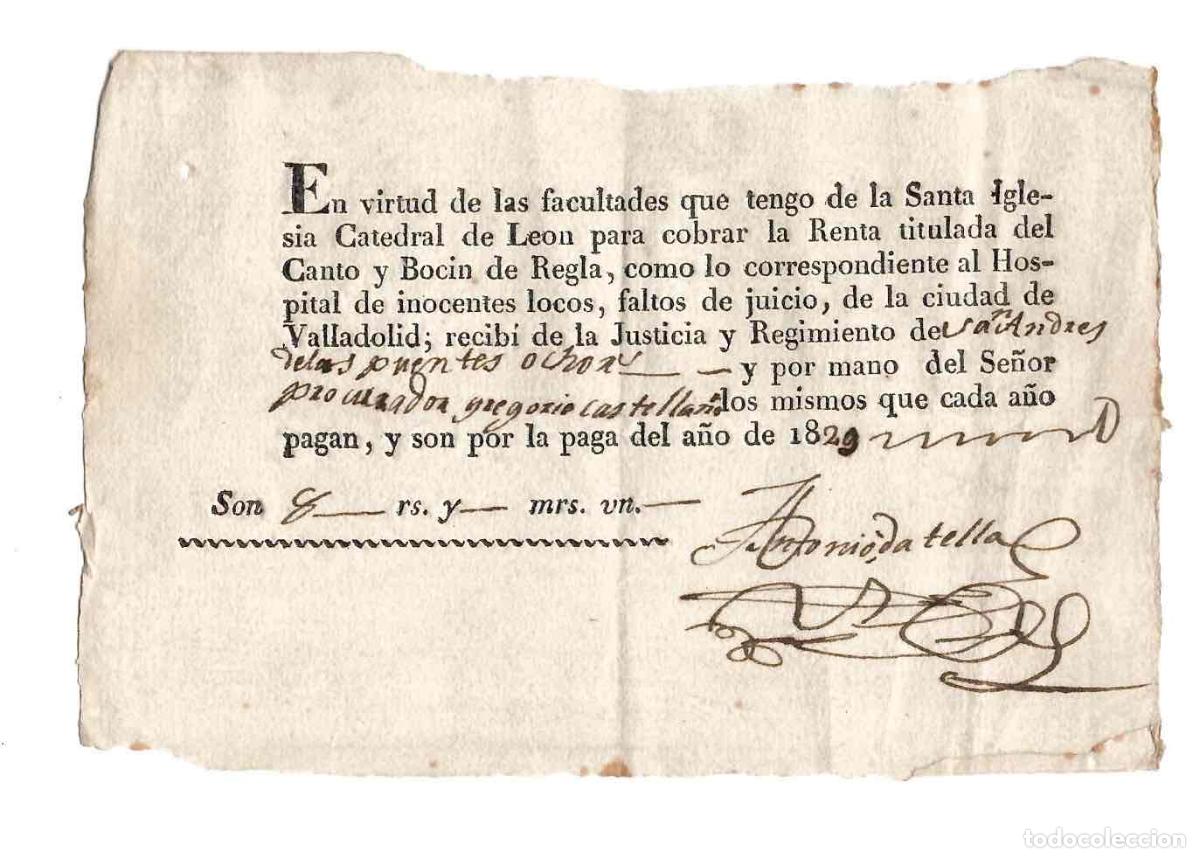 En virtud de las facultades que tengo de la Santa Igle-
sia Catedral de Leon para cobrar la Renta titulada del
Canto y Bocin de Regla, como lo correspondiente al Hos-
pital de inocentes locos, faltos de juicio, de la ciudad de
Valladolid; recibí de la Justicia y Regimiento de San Andres
de las puentes ocho rs y por mano del Señor
procurador gregorio castellano los mismos que cada año
pagan, y son por la paga del año de 1829
Son 8 rs. y mrs. vn.
Antonio
todocoleccion